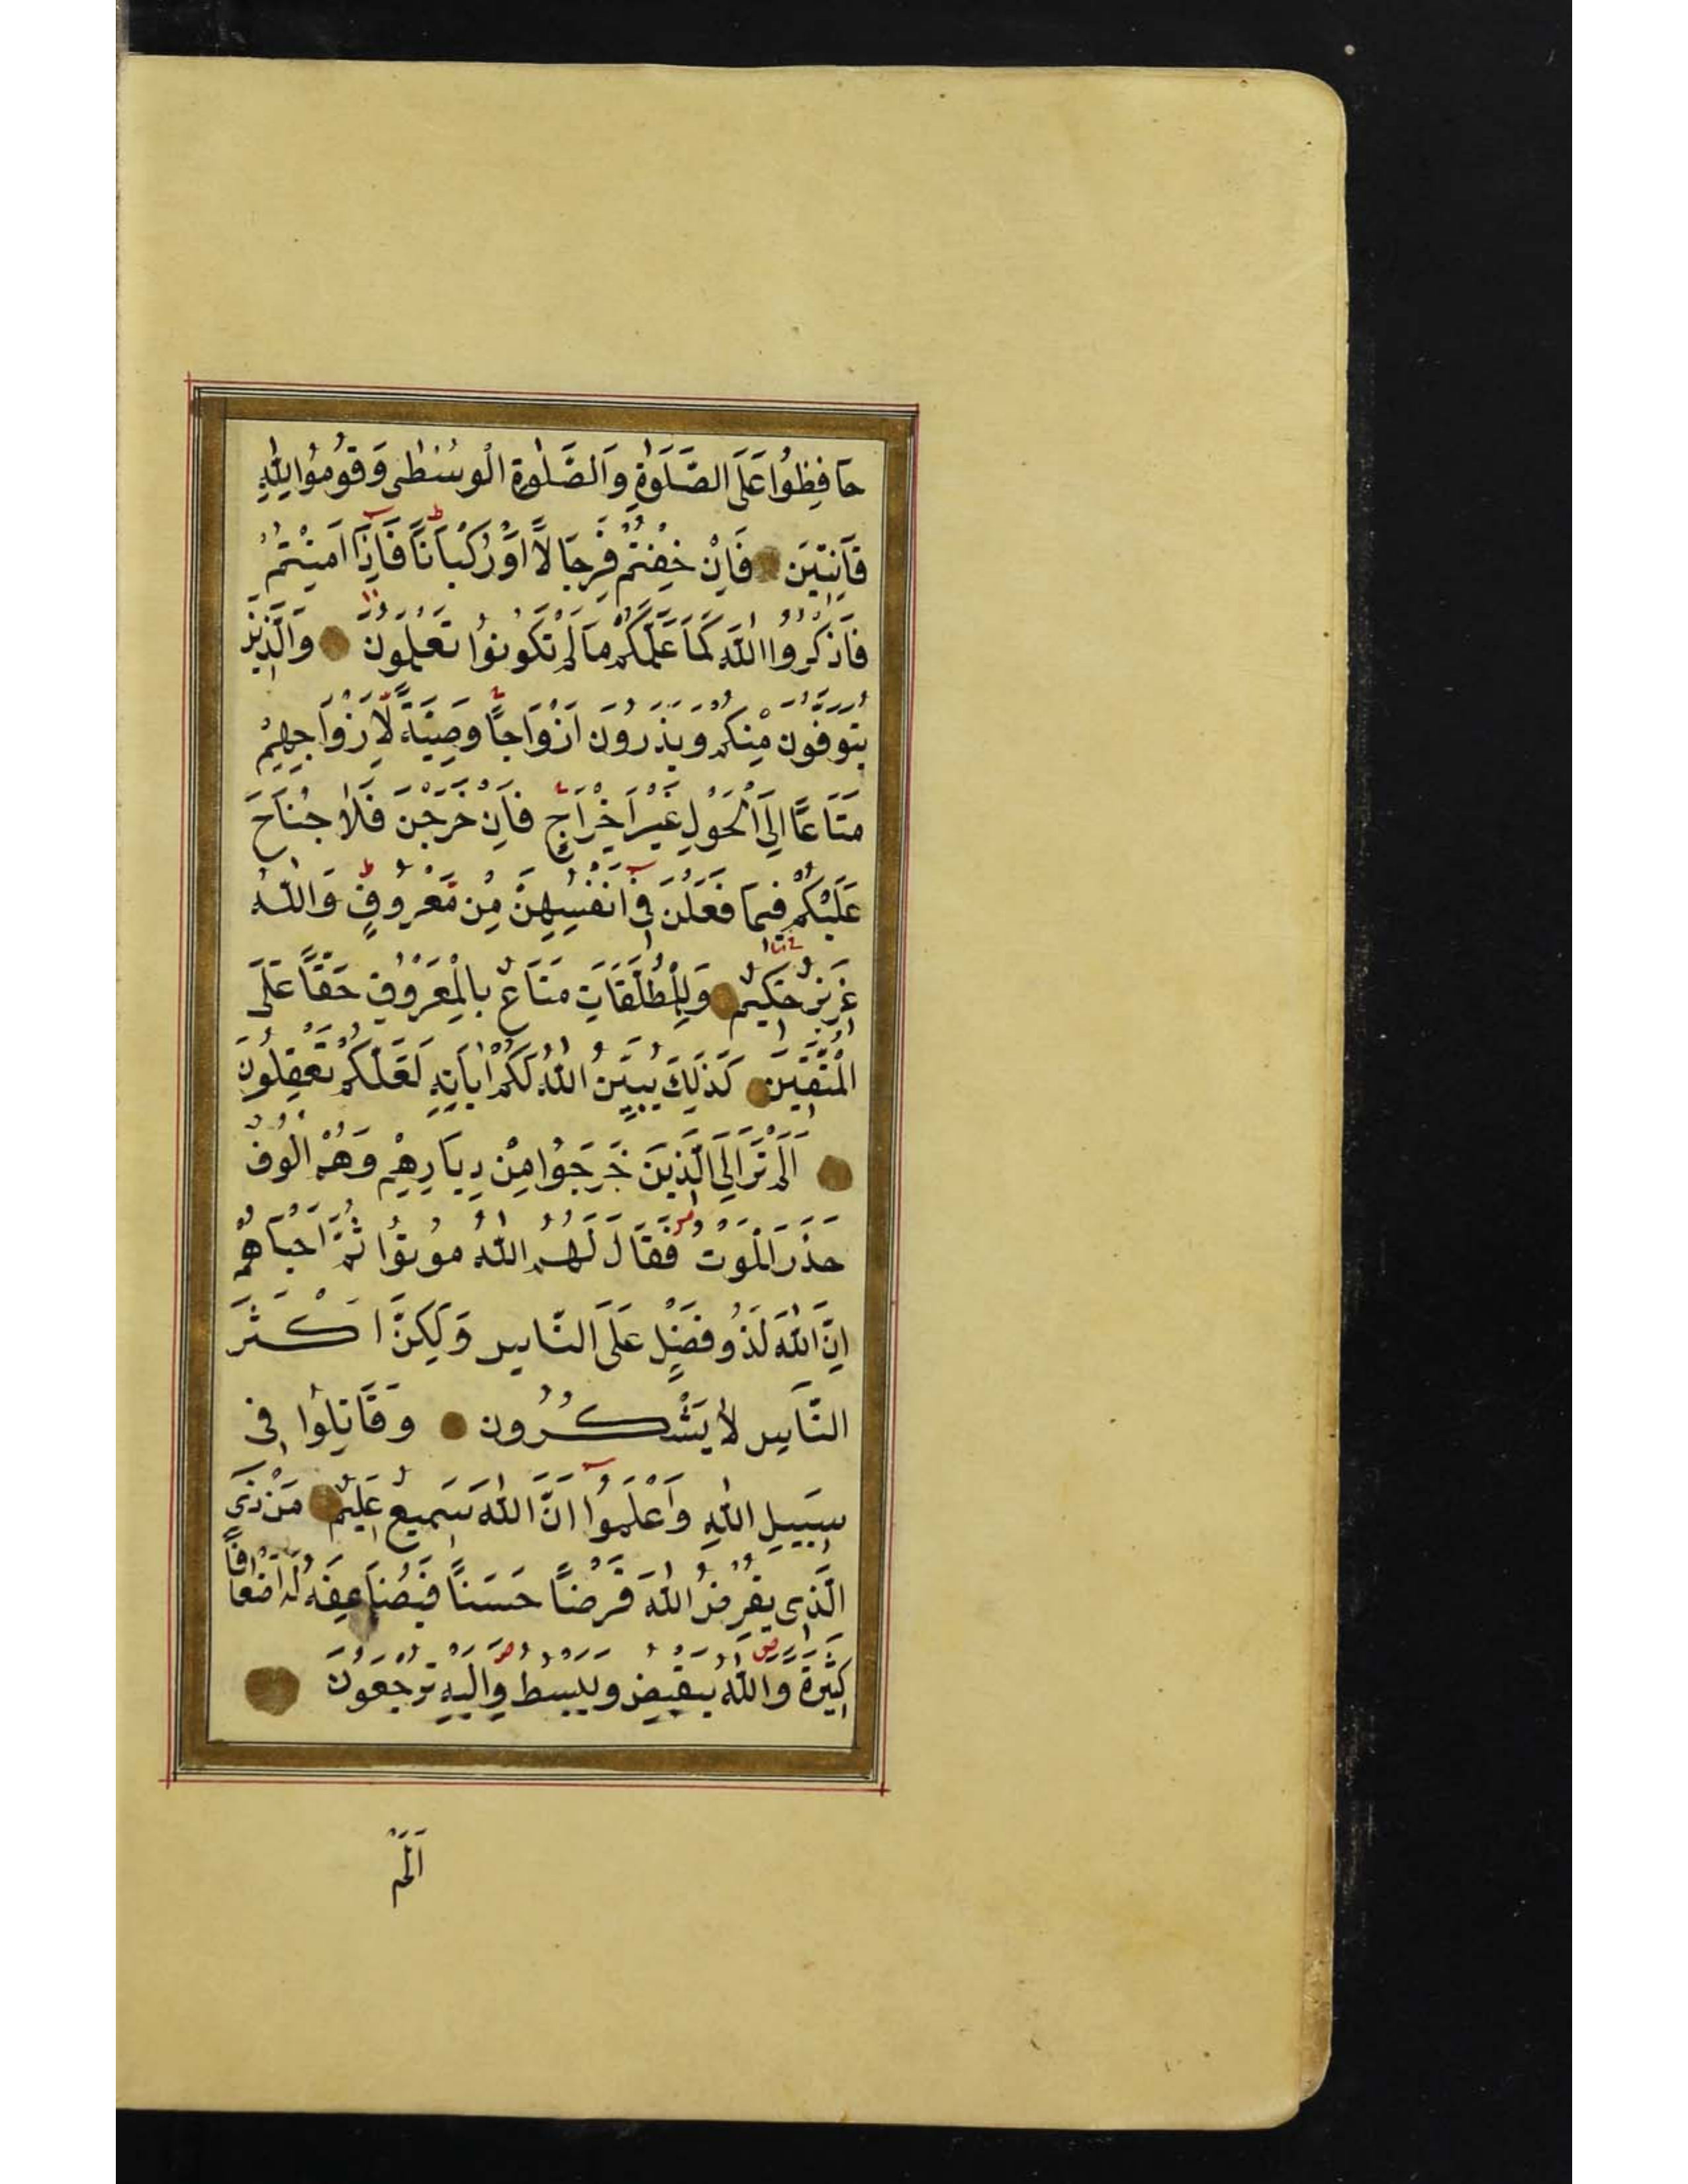 حَافِظُوا عَلَى الصَّلَوٰةِ وَالصَّلٰوةِ الْوُسْطٰى وَقُومُوا لِلّٰهِ
قَانِتِينَ فَاِنْ خِفْتُمْ فَرِجَالًا اَوْ رُكْبَانًا فَاِذَا اَمِنْتُمْ
فَاذْكُرُوا اللّٰهَ كَمَا عَلَّمَكُمْ مَا لَمْ تَكُونُوا تَعْلَمُونَ وَالَّذِينَ
يُتَوَفَّوْنَ مِنْكُمْ وَيَذَرُونَ اَزْوَاجًا وَصِيَّةً لِاَزْوَاجِهِمْ
مَتَاعًا اِلَى الْحَوْلِ غَيْرَ اِخْرَاجٍ فَاِنْ خَرَجْنَ فَلَا جُنَاحَ
عَلَيْكُمْ فِيمَا فَعَلْنَ فِى اَنْفُسِهِنَّ مِنْ مَعْرُوفٍ وَاللّٰهُ
عَزِيزٌ حَكِيمٌ وَلِلْمُطَلَّقَاتِ مَتَاعٌ بِالْمَعْرُوفِ حَقًّا عَلَى
الْمُتَّقِينَ كَذٰلِكَ يُبَيِّنُ اللّٰهُ لَكُمْ اٰيَاتِهِ لَعَلَّكُمْ تَعْقِلُونَ
اَلَمْ تَرَ اِلَى الَّذِينَ خَرَجُوا مِنْ دِيَارِهِمْ وَهُمْ اُلُوفٌ
حَذَرَ الْمَوْتِ فَقَالَ لَهُمُ اللّٰهُ مُوتُوا ثُمَّ اَحْيَاهُمْ
اِنَّ اللّٰهَ لَذُو فَضْلٍ عَلَى النَّاسِ وَلٰكِنَّ اَكْثَرَ
النَّاسِ لَا يَشْكُرُونَ وَقَاتِلُوا فِى
سَبِيلِ اللّٰهِ وَاعْلَمُوا اَنَّ اللّٰهَ سَمِيعٌ عَلِيمٌ مَنْ ذَى
الَّذِى يُقْرِضُ اللّٰهَ قَرْضًا حَسَنًا فَيُضَاعِفَهُ لَهُ اَضْعَافًا
كَثِيرَةً وَاللّٰهُ يَقْبِضُ وَيَبْسُطُ وَاِلَيْهِ تُرْجَعُونَ
اَلَمْ